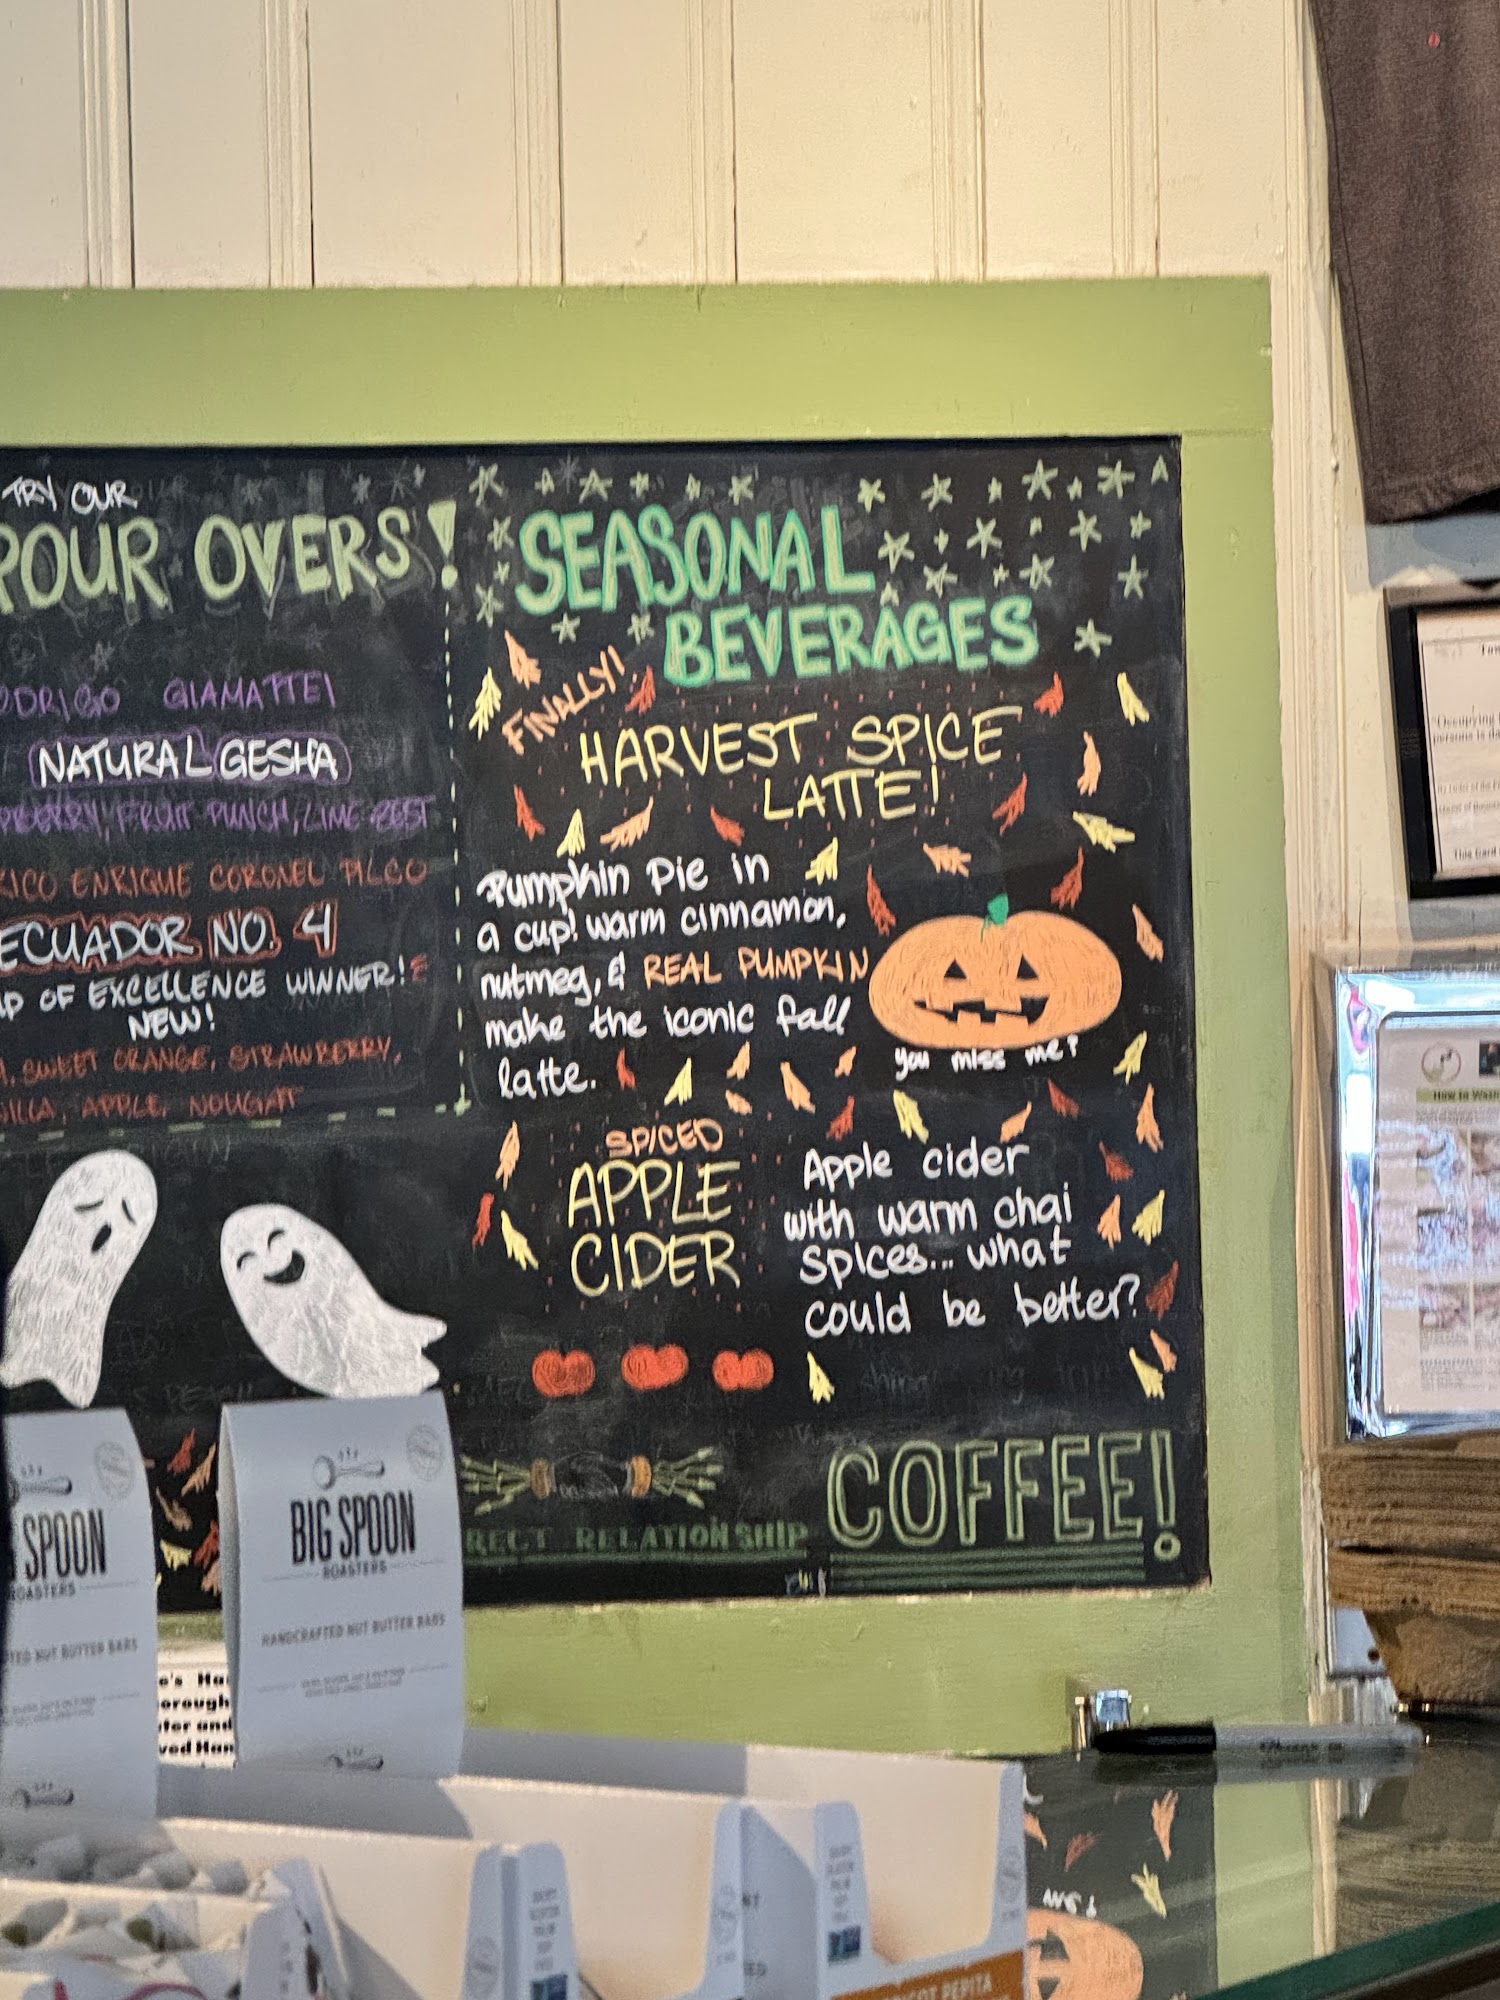 TRY OUR
POUR OVERS!
GIAMATTEI
NATURAL GESHA
FRUIT PUNCH, LIME ZEST
ENRIQUE CORONEL PILCO
ECUADOR NO. 4
OF EXCELLENCE WINNER!
NEW!
SWEET ORANGE, STRAWBERRY,
APPLE, NOUGAT
SEASONAL
BEVERAGES
FINALLY!
HARVEST SPICE
LATTE!
Pumpkin Pie in
a cup! warm cinnamon,
nutmeg, & REAL PUMPKIN
make the iconic fall
latte.
you miss me?
SPICED
APPLE
CIDER
Apple cider
with warm chai
spices... what
could be better?
RELATIONSHIP
COFFEE!
SPOON
ROASTERS
NUT BUTTER BARS
BIG SPOON
ROASTERS
HANDCRAFTED NUT BUTTER BARS
and
How to Wash
"Occupying
This
PEPITA